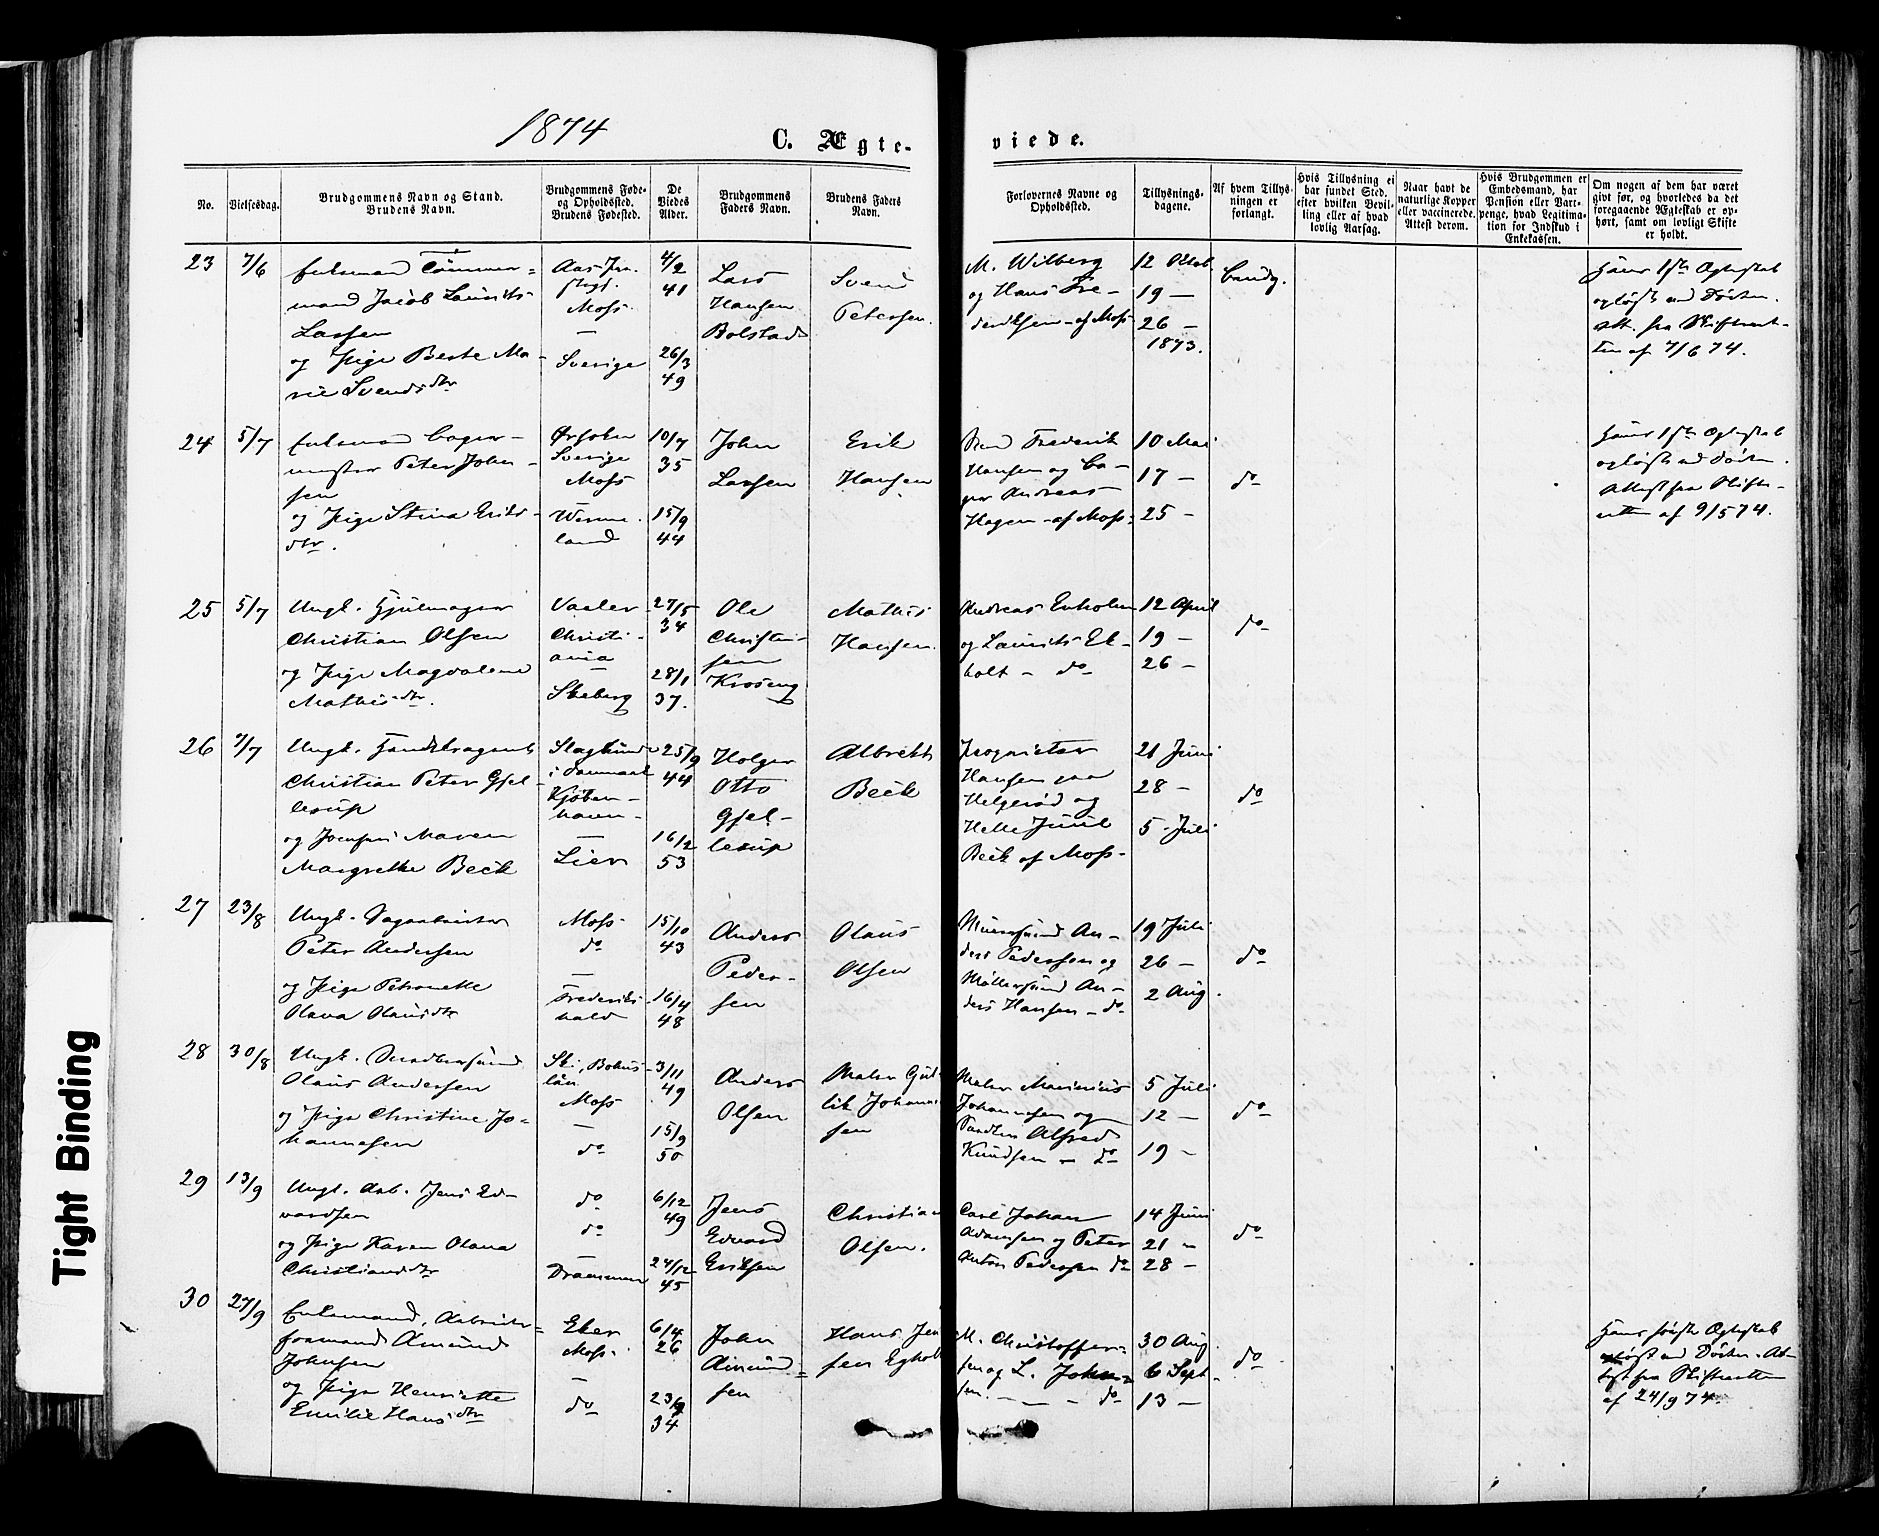 1874
C. Ægte-
viede.
No.
Vielsesdag.
Brudgommens Navn og Stand.
Brudens Navn.
Brudgommens Føde-
og Opholdssted.
Brudens Fødested.
De
Viedes
Alder.
Brudgommens
Faders Navn.
Brudens Faders
Navn.
Forlovernes Navne og
Opholdssted.
Tillysnings-
dagene.
Af hvem Tillys-
ningen er
forlangt.
Hvis Tillysning ei
har fundet Sted,
efter hvilken Bevil-
ling eller af hvad
lovlig Aarsag.
Naar havt de
naturlige Kopper
eller vaccinerede.
Attest derom.
Hvis Brudgommen er
Embedsmand, har
Pension eller Vart-
penge, hvad Legitima-
tion for Indskud i
Enkekassen.
Om nogen af dem har været
givt før, og hvorledes da det
foregaaende Ægteskab er op-
hørt, samt om lovligt Skifte
er holdt.
23
7/6
Enkemand Tømmer-
mand Jacob Laurits
Larsen
og Pige Beate Ma-
rie Svendsdtr
Moss
—
Sverige
4/2
41
26/3
49
Lars
Hansen
Bolstad
Svend
Petersen
M. Wilberg
og Hans Fre-
deriksen - af Moss
12 Oktob
19 —
26 —
1873.
Hans 1ste Ægteskab
opløst ved Døden.
Att. fra Skifteret-
ten af 7/6 74.
24
5/7
Enkemand
Peter John-
sen
og Pige Stina Eriks-
dtr.
Sverige
Moss
Werme-
land
10/7
35
15/9
44
John
Larsen
Erik
Hansen
Frederik
Hansen og Ba-
ger Andreas
Hagen - af Moss
10 Mai
17 —
25 —
do
Hans 1ste Ægteskab
opløst ved Døden.
Attest fra Skifte-
retten af 9/5 74.
25
5/7
Ungk. Hjulmager
Christian Olsen
og Pige Magdalene
Mathisdtr.
Vaaler
Christi-
ania
—
Skeberg
27/5
34
28/1
37.
Ole
Christen-
sen
Kroseng
Mathis
Hansen.
Andreas Enholm
og Laurits Ek-
holt - do
12 April
19 —
26 —
do
26
7/7
Ungk. Handelsagent
Christian Peter Gjel-
lerup
og Jomfru Maren
Margrethe Beck
i Danmark
Kjøben-
havn
—
Lier
25/9
44
16/2
53
Holger
Otto
Gjel-
lerup
Albrekt
Beck
Proprietær
Hansen paa
Helgerød og
Helle Juul
Beck af Moss
21 Juni
28 —
5 Juli
do
27
23/8
Ungk. Sagarbeider
Peter Andersen
og Pige Petronelle
Olava Olausdtr
Moss
do
—
Frederiks-
hald
15/10
43
16/4
48
Anders
Peder-
sen
Olaus
Olsen
Muursvend An-
ders Pedersen og
Møllersvend An-
ders Hansen - do
19 Juli
26 —
2 Aug.
do
28
30/8
Ungk.
Olaus Andersen
og Pige Christine Jo-
hannesen
Ski, Bohus-
län
Moss
—
do
3/11
49
15/9
50
Anders
Olsen
Maler Gud-
lik Johannes-
sen
Maler Marinius
Johannesen og
Alfred
Knudsen - do
5 Juli
12 —
19 —
do
29
13/9
Ungk. Arb. Jens Ed-
vardsen
og Pige Karen Olava
Christiansdtr
do
do
—
Drammen
6/12
49
24/12
45
Jens
Edvard
Eriksen
Christian
Olsen.
Carl Johan
Adamsen og Peter
Anton Pedersen do
14 Juni
21 —
28 —
do
30
27/9
Enkemand, Arbeids-
formand Amund
Johnsen
og Pige Henriette
Emilie Hansdtr
Eker
Moss.
—
do
6/4
26
23/9
34
John
Amund-
sen
Hans Jen-
sen Egholt
M. Christoffer-
sen og L. John-
sen. — - do
30 Aug.
6 Sept.
13 —
do
Hans første Ægteskab
opløst ved Døden. At-
test fra Skifteretten
af 24/9 74.
Tight Binding